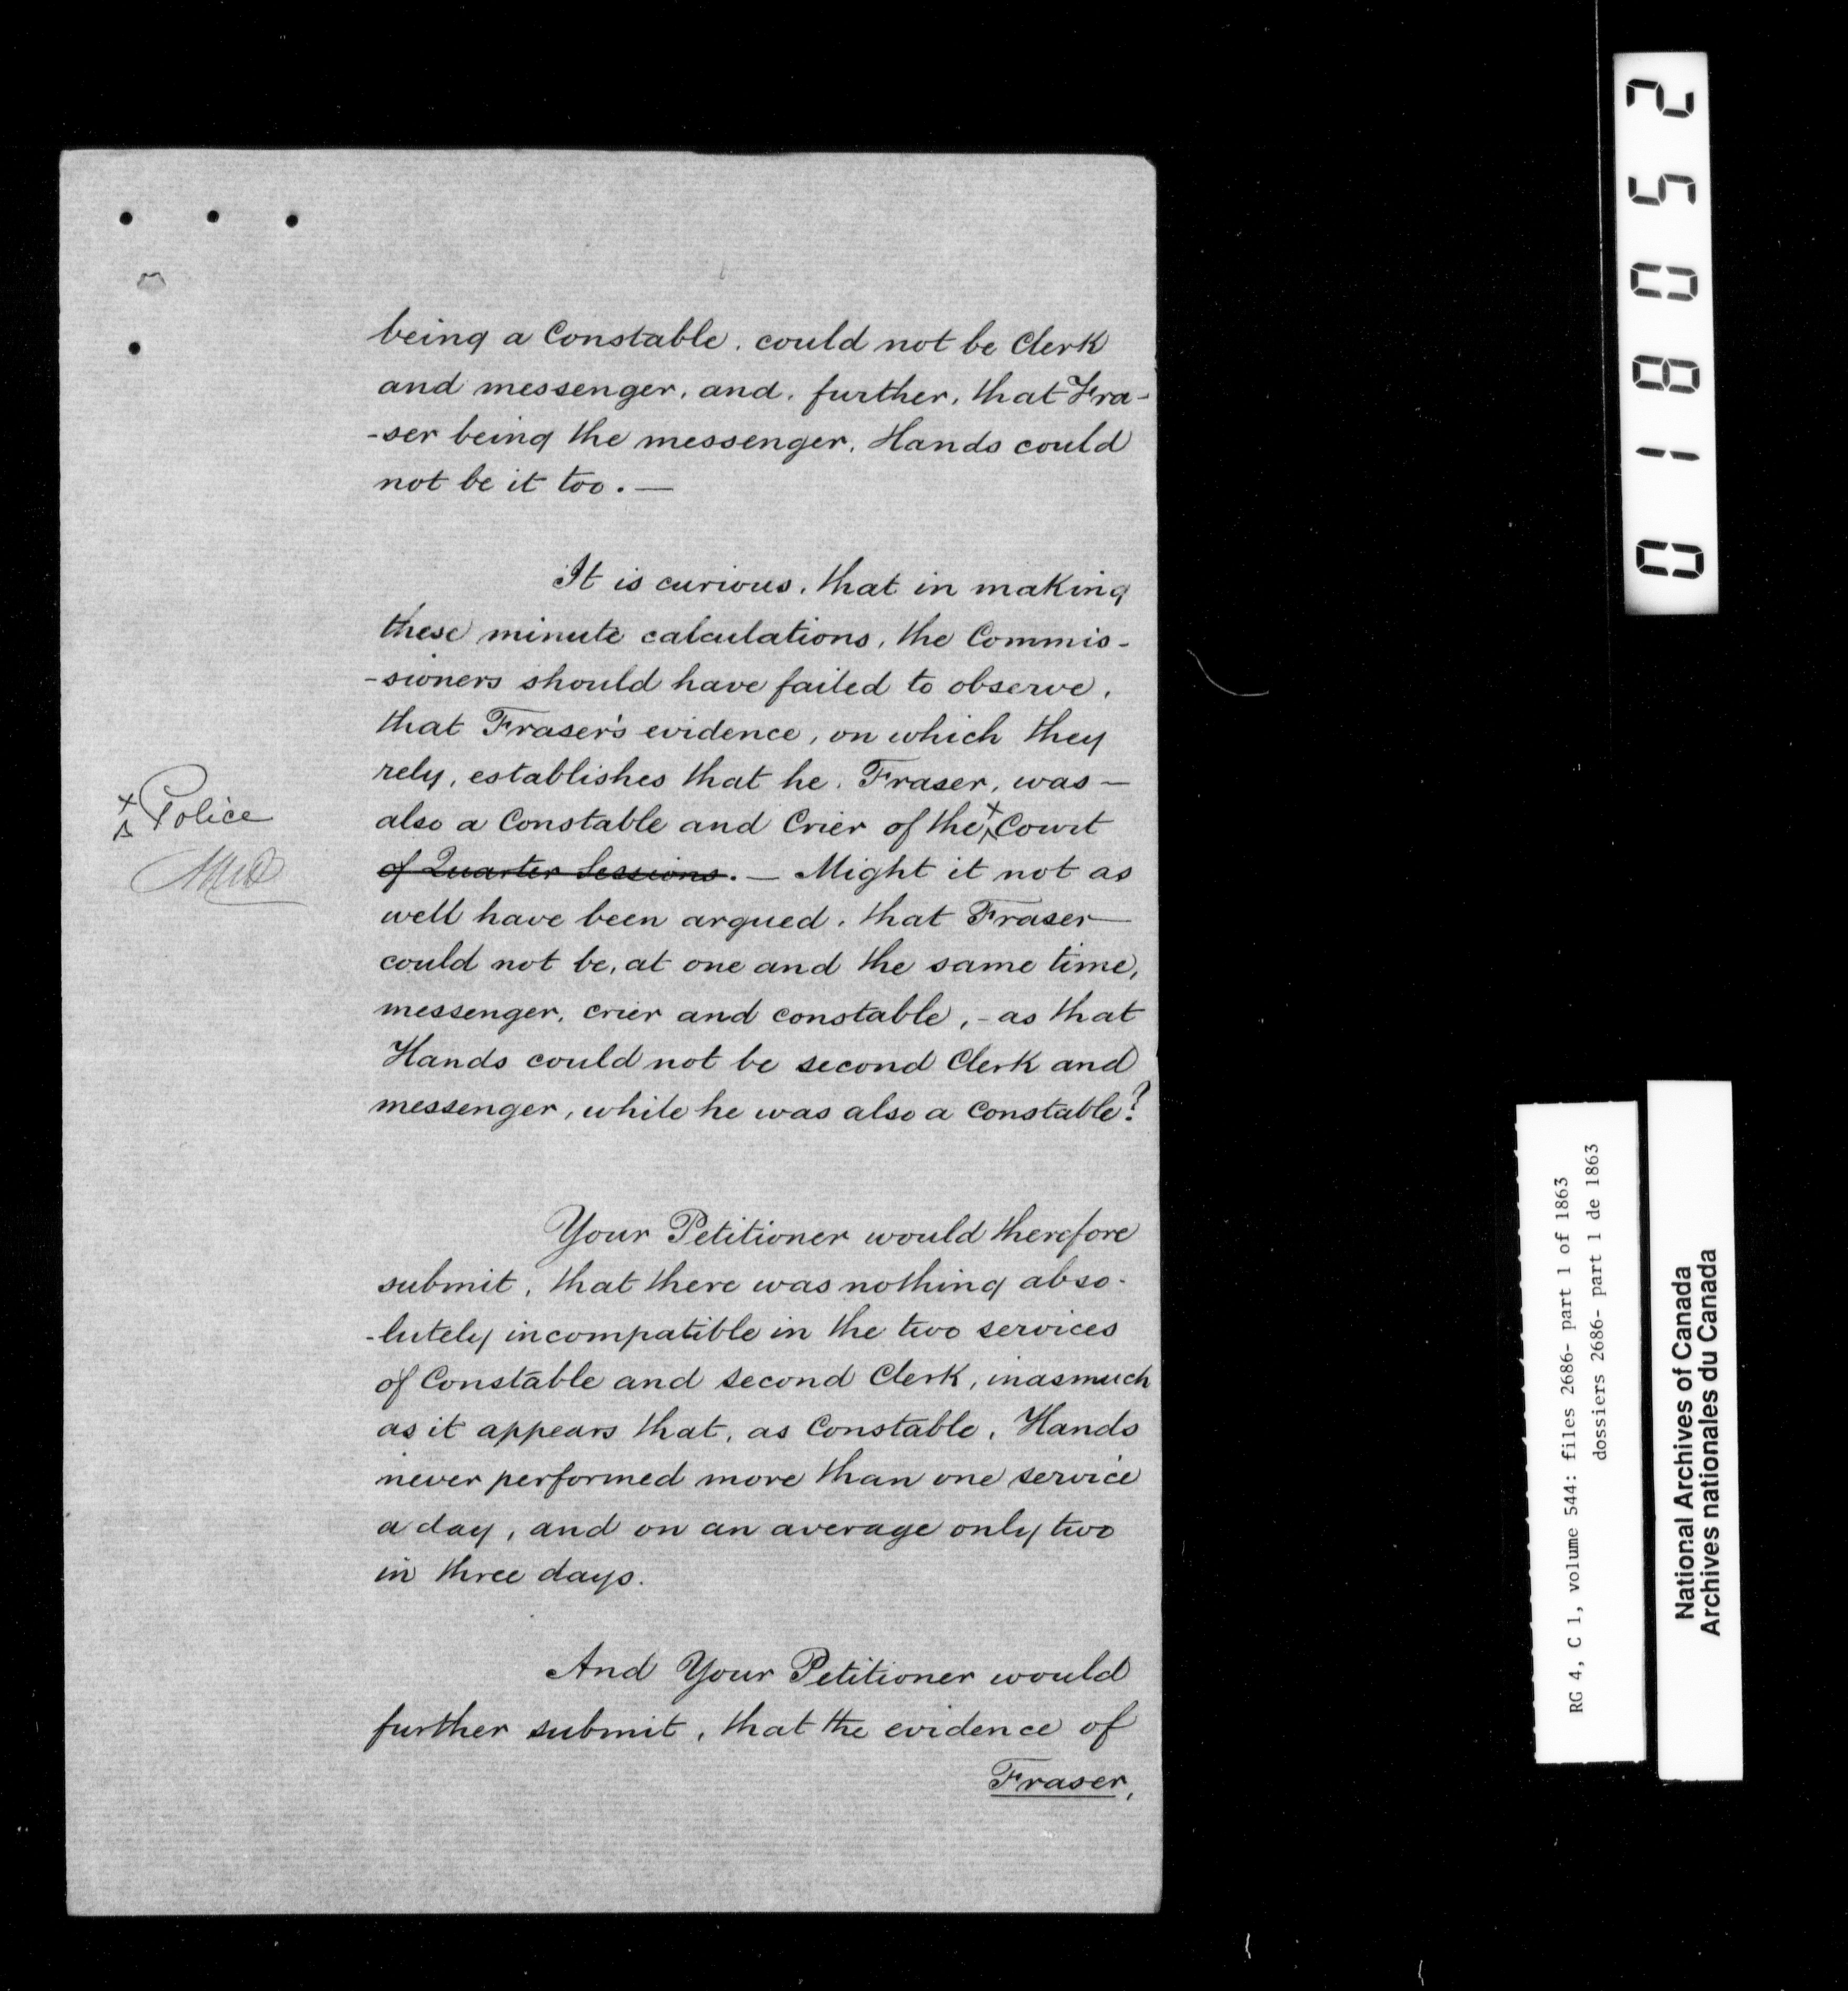 being a Constable, could not be Clerk
and messenger, and, further, that Fra-
-ser being the messenger, Hands could
not be it too. —
It is curious, that in making
these minute calculations, the Commis-
-sioners should have failed to observe,
that Fraser's evidence, on which they
rely, establishes that he, Fraser, was —
also a Constable and Crier of the x Court
x Police
of Quarter Sessions. — Might it not as
well have been argued, that Fraser
could not be, at one and the same time,
messenger, crier and constable, - as that
Hands could not be second Clerk and
messenger, while he was also a Constable?
Your Petitioner would therefore
submit, that there was nothing abso-
-lutely incompatible in the two services
of Constable and second Clerk, inasmuch
as it appears that, as Constable, Hands
never performed more than one service
a day, and on an average only two
in three days.
And Your Petitioner would
further submit, that the evidence of
Fraser,
018052
RG 4, C 1, volume 544: files 2686- part 1 of 1863
dossiers 2686- part 1 de 1863
National Archives of Canada
Archives nationales du Canada